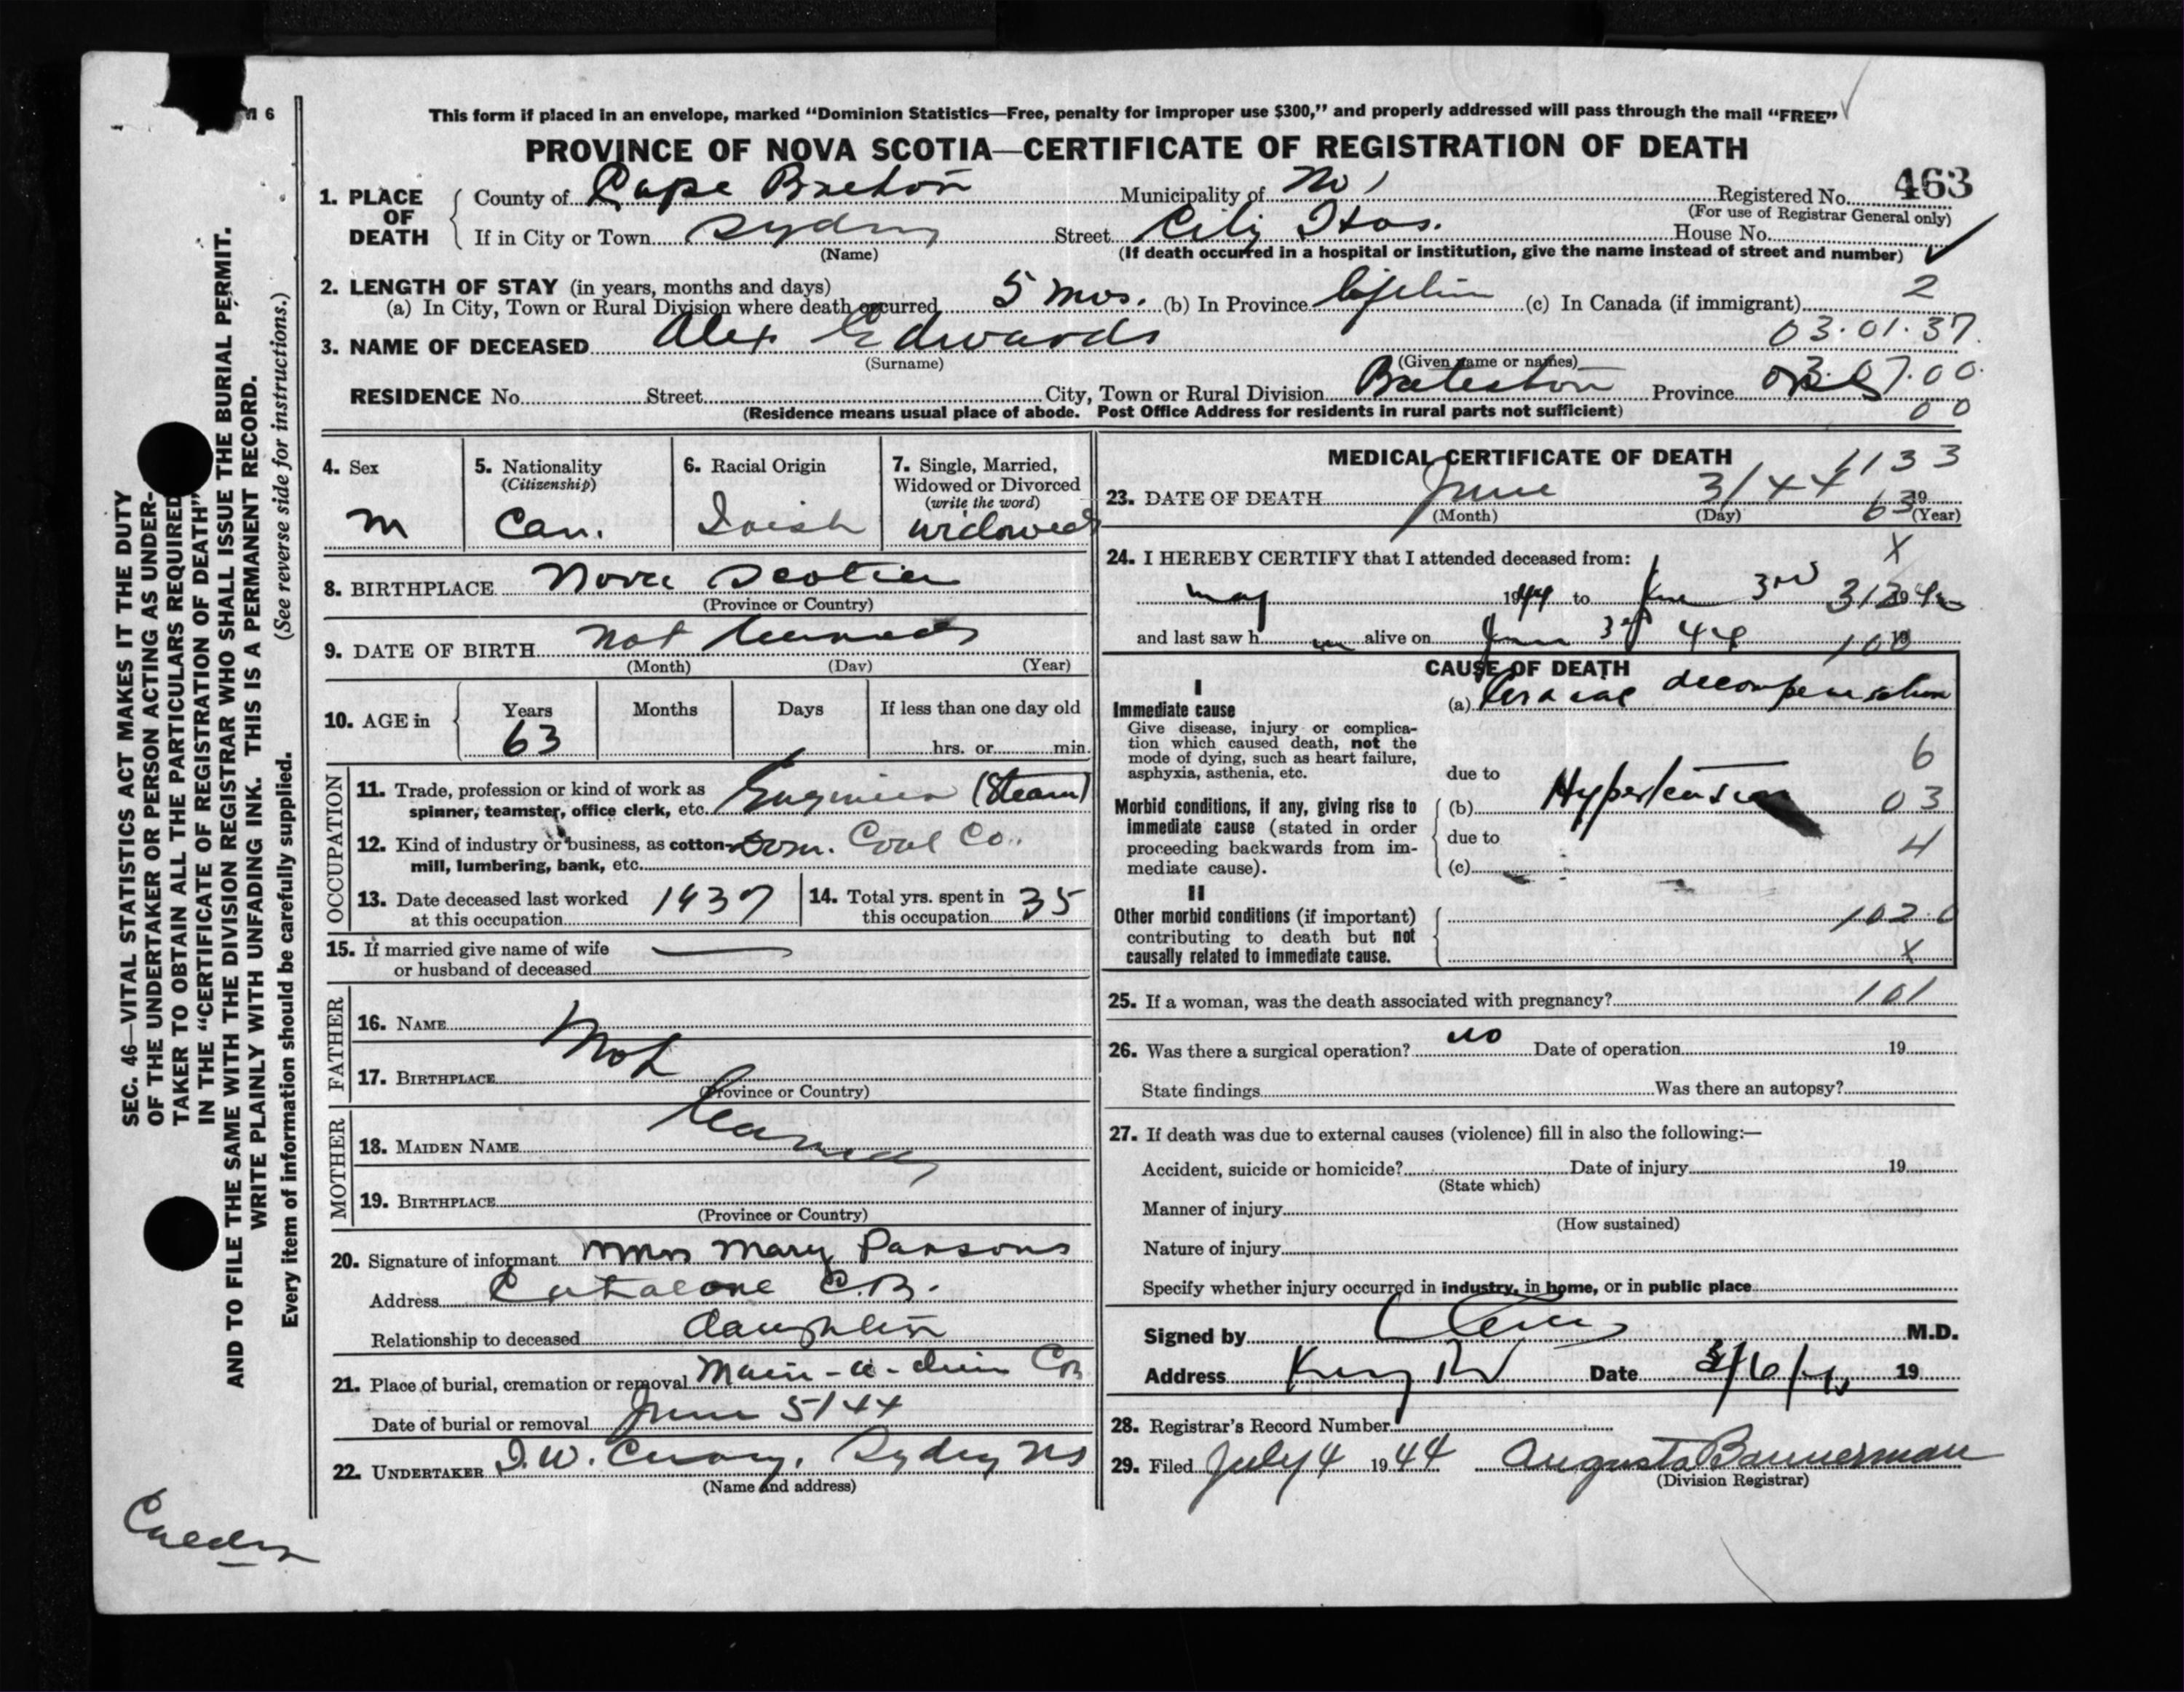 M 6
This form if placed in an envelope, marked "Dominion Statistics—Free, penalty for improper use $300," and properly addressed will pass through the mail "FREE"
PROVINCE OF NOVA SCOTIA—CERTIFICATE OF REGISTRATION OF DEATH
1. PLACE OF DEATH County of Cape Breton Municipality of No 1 Registered No. 463
(For use of Registrar General only)
If in City or Town Sydney Street City Hos. House No.
(Name) (If death occurred in a hospital or institution, give the name instead of street and number)
2. LENGTH OF STAY (in years, months and days)
(a) In City, Town or Rural Division where death occurred 5 mos. (b) In Province Lifetime (c) In Canada (if immigrant) 2
03.01.37.
3. NAME OF DECEASED Alex Edwards
(Surname) (Given name or names)
RESIDENCE No. Street City, Town or Rural Division Bateston Province 03.07.00.
(Residence means usual place of abode. Post Office Address for residents in rural parts not sufficient) 00
4. Sex
M
5. Nationality
(Citizenship)
Can.
6. Racial Origin
Irish
7. Single, Married, Widowed or Divorced
(write the word)
widowed
8. BIRTHPLACE Nova Scotia
(Province or Country)
9. DATE OF BIRTH not learned
(Month) (Day) (Year)
10. AGE in Years Months Days If less than one day old
63 hrs. or min.
OCCUPATION
11. Trade, profession or kind of work as spinner, teamster, office clerk, etc. Engineer (Steam)
12. Kind of industry or business, as cotton-mill, lumbering, bank, etc. Dom. Coal Co.
13. Date deceased last worked at this occupation 1937
14. Total yrs. spent in this occupation 35
15. If married give name of wife or husband of deceased —
FATHER
16. NAME
Not
17. BIRTHPLACE
(Province or Country)
learned
MOTHER
18. MAIDEN NAME
19. BIRTHPLACE
(Province or Country)
20. Signature of informant Mrs Mary Parsons
Address Catalone C.B.
Relationship to deceased daughter
21. Place of burial, cremation or removal Main-a-dieu CB
Date of burial or removal June 5/44
22. UNDERTAKER Sydney NS
(Name and address)
MEDICAL CERTIFICATE OF DEATH
1133
23. DATE OF DEATH June 3/44 19
(Month) (Day) (Year)
63
24. I HEREBY CERTIFY that I attended deceased from: X
May 1944 to June 3rd 19
and last saw h m alive on June 3rd 44 19
100
CAUSE OF DEATH
I
Immediate cause
Give disease, injury or complication which caused death, not the mode of dying, such as heart failure, asphyxia, asthenia, etc.
(a) decompensation
6
due to
Morbid conditions, if any, giving rise to immediate cause (stated in order proceeding backwards from immediate cause).
(b) Hypertension 03
due to 4
(c)
II
Other morbid conditions (if important) contributing to death but not causally related to immediate cause.
102.0
X
25. If a woman, was the death associated with pregnancy? 101
26. Was there a surgical operation? no Date of operation 19
State findings Was there an autopsy?
27. If death was due to external causes (violence) fill in also the following:—
Accident, suicide or homicide? Date of injury 19
(State which)
Manner of injury
(How sustained)
Nature of injury
Specify whether injury occurred in industry, in home, or in public place
Signed by M.D.
Address Date 19
28. Registrar's Record Number
29. Filed July 4 1944 Augusta Bannerman
(Division Registrar)
SEC. 46—VITAL STATISTICS ACT MAKES IT THE DUTY
OF THE UNDERTAKER OR PERSON ACTING AS UNDER-
TAKER TO OBTAIN ALL THE PARTICULARS REQUIRED
IN THE "CERTIFICATE OF REGISTRATION OF DEATH"
AND TO FILE THE SAME WITH THE DIVISION REGISTRAR WHO SHALL ISSUE THE BURIAL PERMIT.
WRITE PLAINLY WITH UNFADING INK. THIS IS A PERMANENT RECORD.
(See reverse side for instructions.)
Every item of information should be carefully supplied.